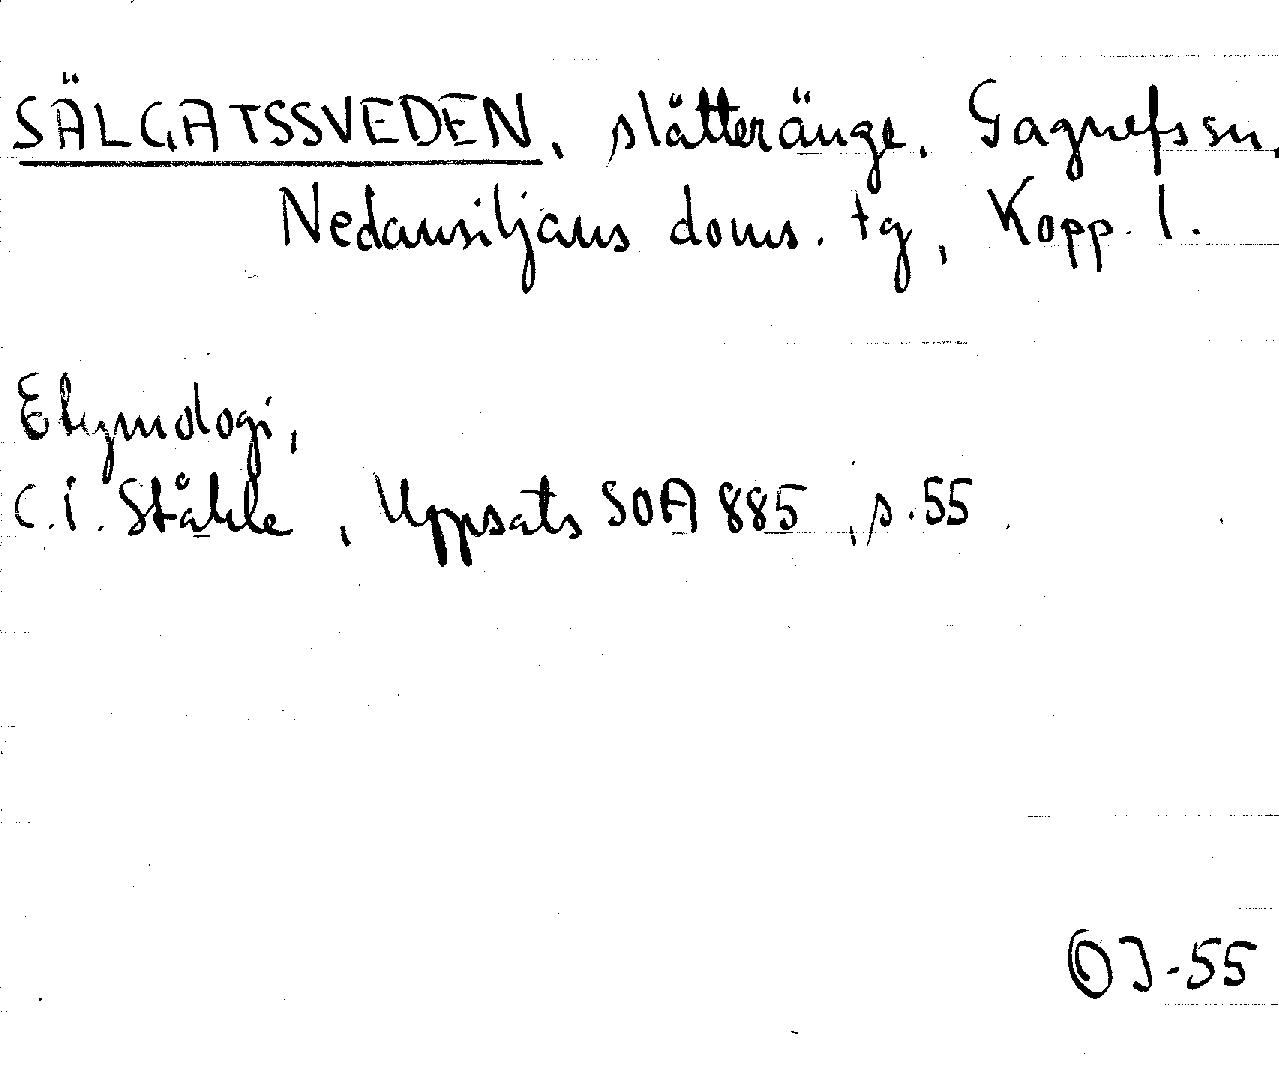 SÄLGATSSVEDEN, slåtteränge, Gagnefs sn,
Nedansiljans doms. tg, Kopp. l.
Etymologi,
C.I. Ståhle, Uppsats SOA 885, s. 55.
OJ-55